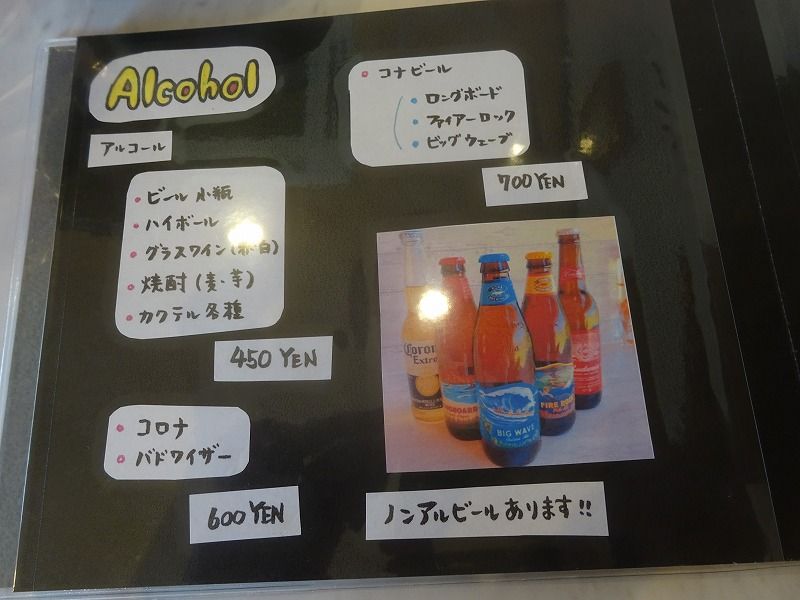 Alcohol
アルコール
・ビール 小瓶
・ハイボール
・グラスワイン(赤・白)
・焼酎(麦・芋)
・カクテル各種
450 YEN
・コロナ
・バドワイザー
600 YEN
・コナビール
・ロングボード
・ファイアーロック
・ビッグウェーブ
700 YEN
Corona
Extra
LONGBOARD
BIG WAVE
FIRE ROCK
ノンアルビールあります!!